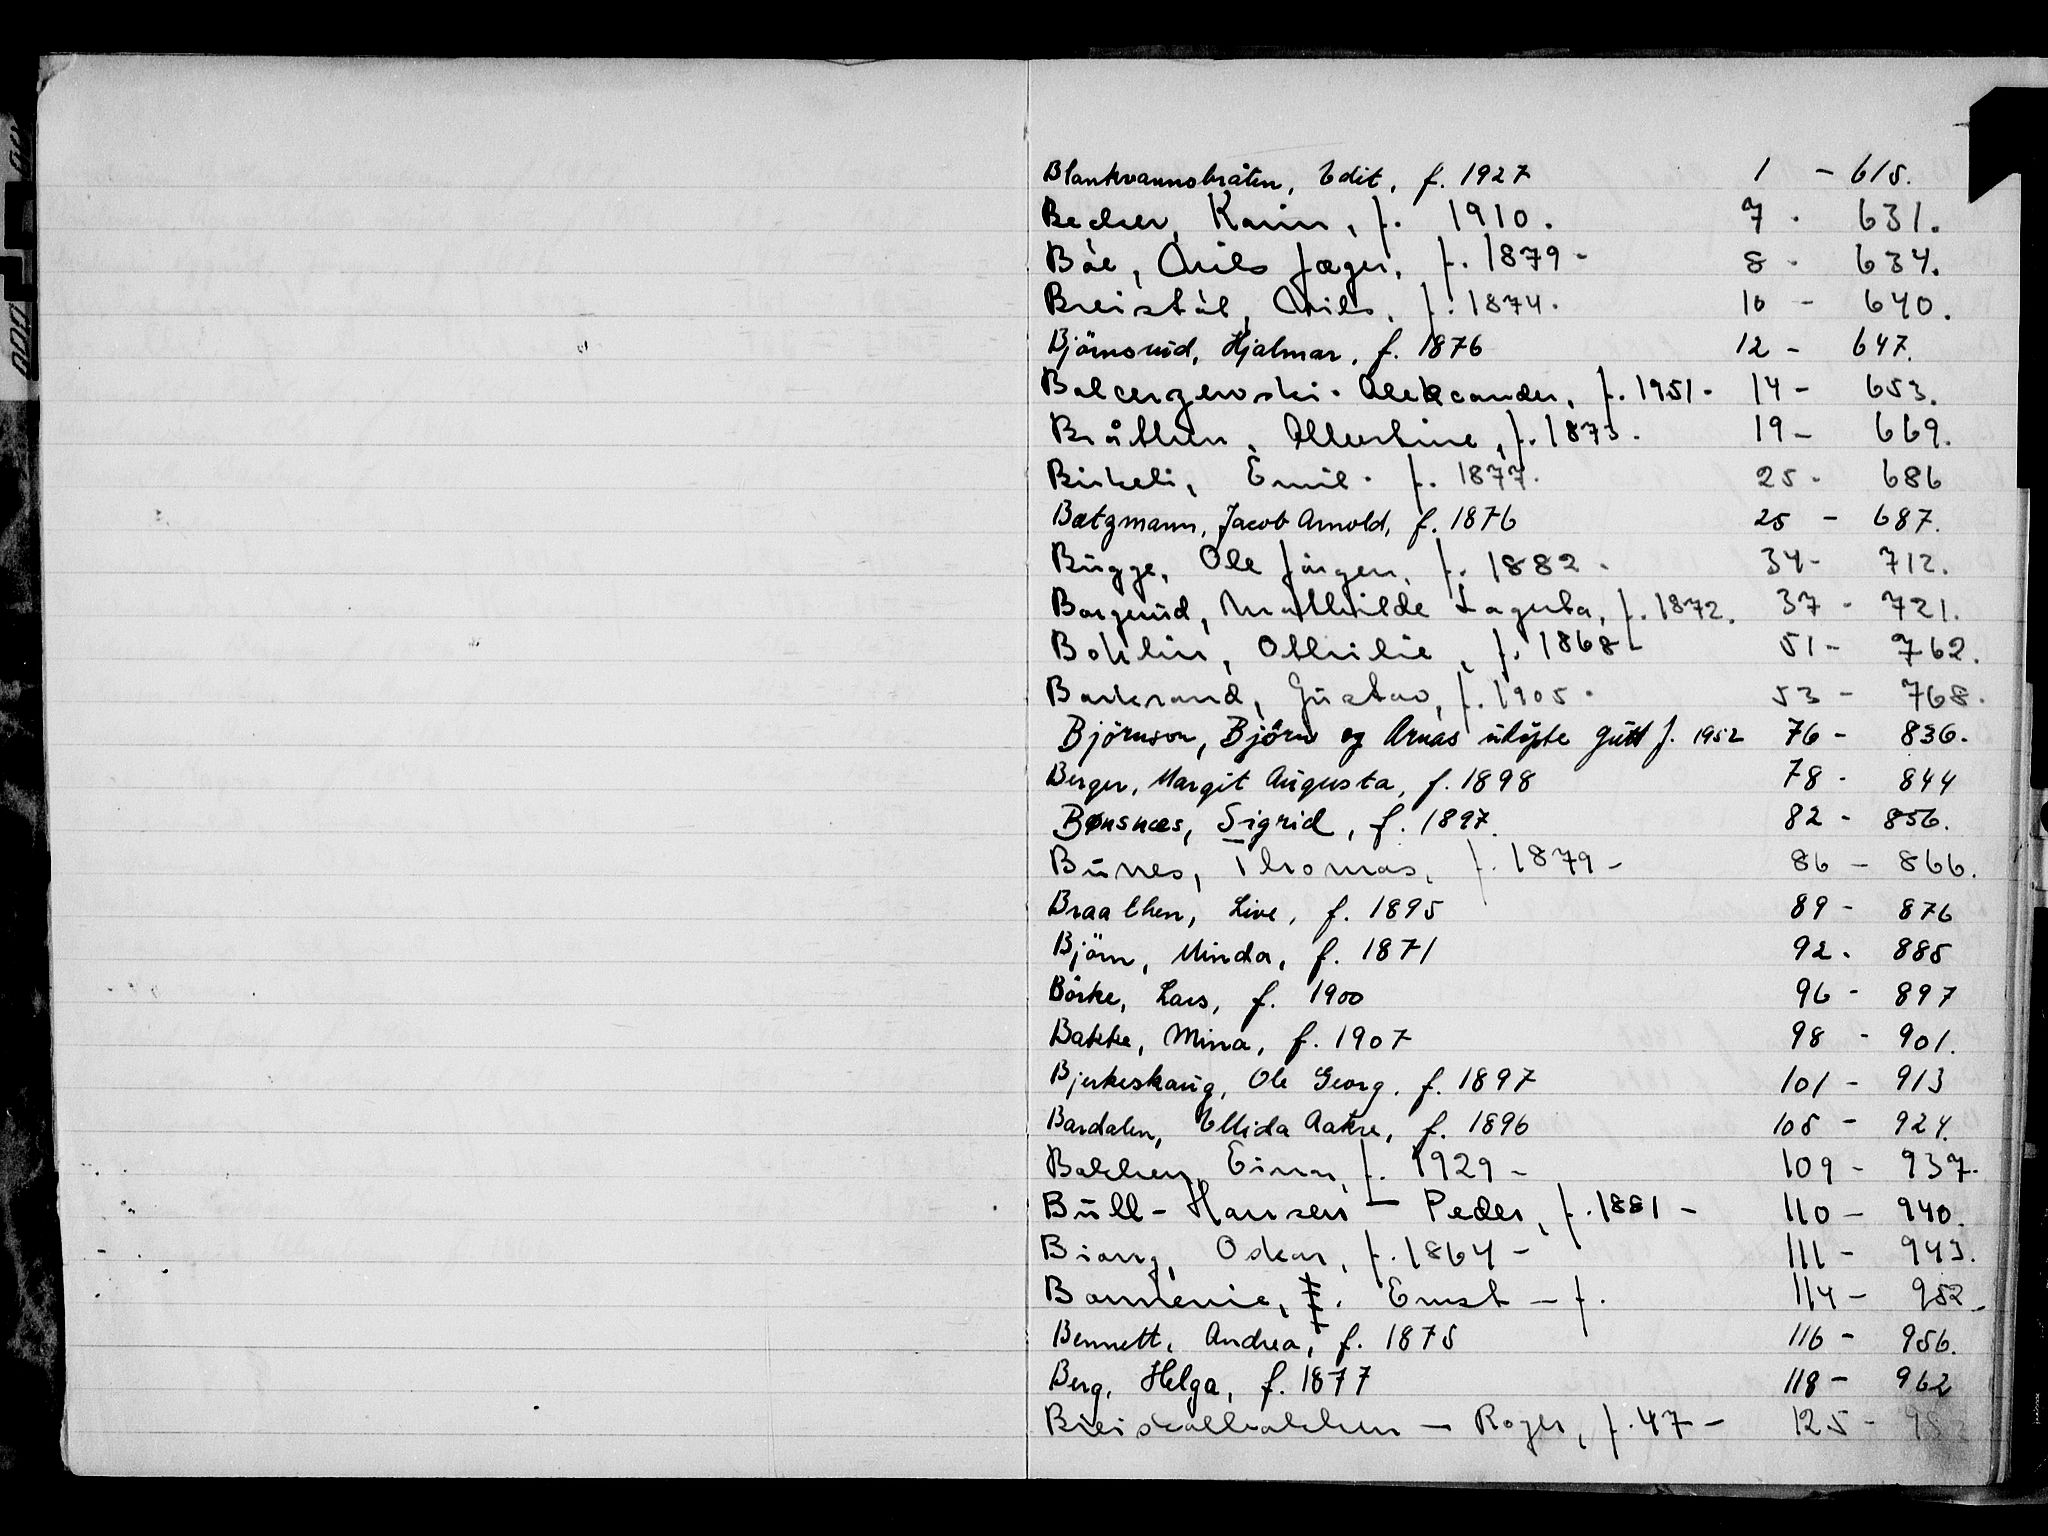 Blankvannsbråten, Edit, f. 1927 1 - 615.
Becker, Karin, f. 1910. 7 - 631.
Båe, Nils Jæger, f. 1879 - 8 - 634.
Breistöl, Nils, f. 1874. 10 - 640.
Björnsrud, Hjalmar, f. 1876 12 - 647.
Balcerzewski - Aleksander, f. 1951 - 14 - 653.
Bråthen, Albertine, f. 1873. 19 - 669.
Birkeli, Emil. f. 1877. 25 - 686
Bætzmann, Jacob Arnold, f. 1876 25 - 687.
Bugge, Ole Jörgen, f. 1882 - 34 - 712.
Borgerud, Mathilde Lagerta, f. 1872. 37 - 721.
Bohlin, Othilie, f. 1868 - 51 - 762.
Barkrand, Gustav, f. 1905 - 53 - 768.
Björnson, Björn og Arnas udöpte gutt f. 1952 76 - 836.
Berger, Margit Augusta, f. 1898 78 - 844
Bønsnæs, Sigrid, f. 1897. 82 - 856.
Bunes, Thomas, f. 1879 - 86 - 866.
Braathen, Live, f. 1895 89 - 876
Björn, Minda, f. 1871 92 - 885
Börke, Lars, f. 1900 96 - 897
Bakke, Mina, f. 1907 98 - 901.
Bjerkeskaug, Ole Georg, f. 1897 101 - 913
Bardalen, Ellida Aakre, f. 1896 105 - 924.
Bakken, Einar, f. 1929 - 109 - 937.
Bull-Hansen - Peder, f. 1881 - 110 - 940.
Oskar, f. 1864 - 111 - 943.
Ernst - f. 114 - 952
Bennett, Andrea, f. 1875 116 - 956.
Berg, Helga, f. 1877 118 - 962
- Roger, f. 47 - 125 -